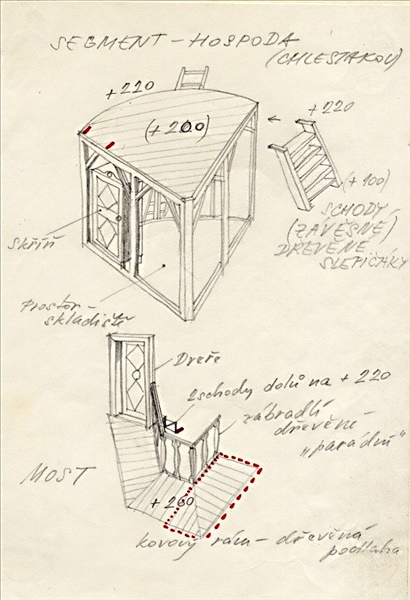 SEGMENT – HOSPODA
(CHLESTAKOV)
+220
(+200)
+220
(+100)
SCHODY
(ZÁVĚSNÉ)
DŘEVĚNÉ
SLEPIČÁKY
Skříň
Prostor –
skladiště
Dveře
2schody dolů na +220
zábradlí
dřevěné –
„parádní“
MOST
+260
kovový rám – dřevěná
podlaha